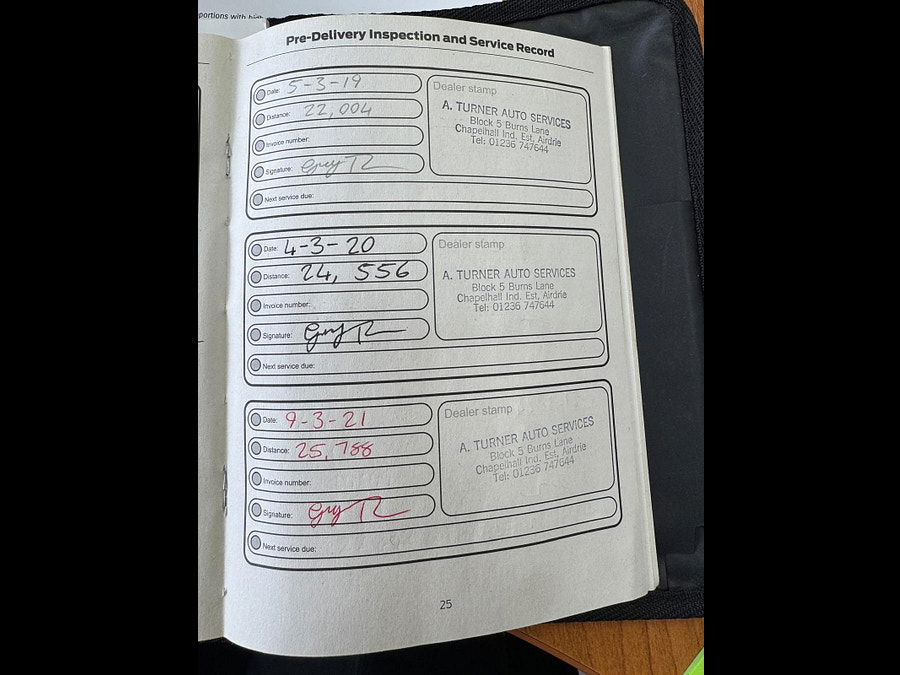 portions with high
Pre-Delivery Inspection and Service Record
Date: 5-3-19
Distance: 22,004
Invoice number:
Signature:
Next service due:
Dealer stamp
A. TURNER AUTO SERVICES
Block 5 Burns Lane
Chapelhall Ind. Est, Airdrie
Tel: 01236 747644
Date: 4-3-20
Distance: 24, 556
Invoice number:
Signature:
Next service due:
Dealer stamp
A. TURNER AUTO SERVICES
Block 5 Burns Lane
Chapelhall Ind. Est, Airdrie
Tel: 01236 747644
Date: 9-3-21
Distance: 25, 788
Invoice number:
Signature:
Next service due:
Dealer stamp
A. TURNER AUTO SERVICES
Block 5 Burns Lane
Chapelhall Ind. Est, Airdrie
Tel: 01236 747644
25